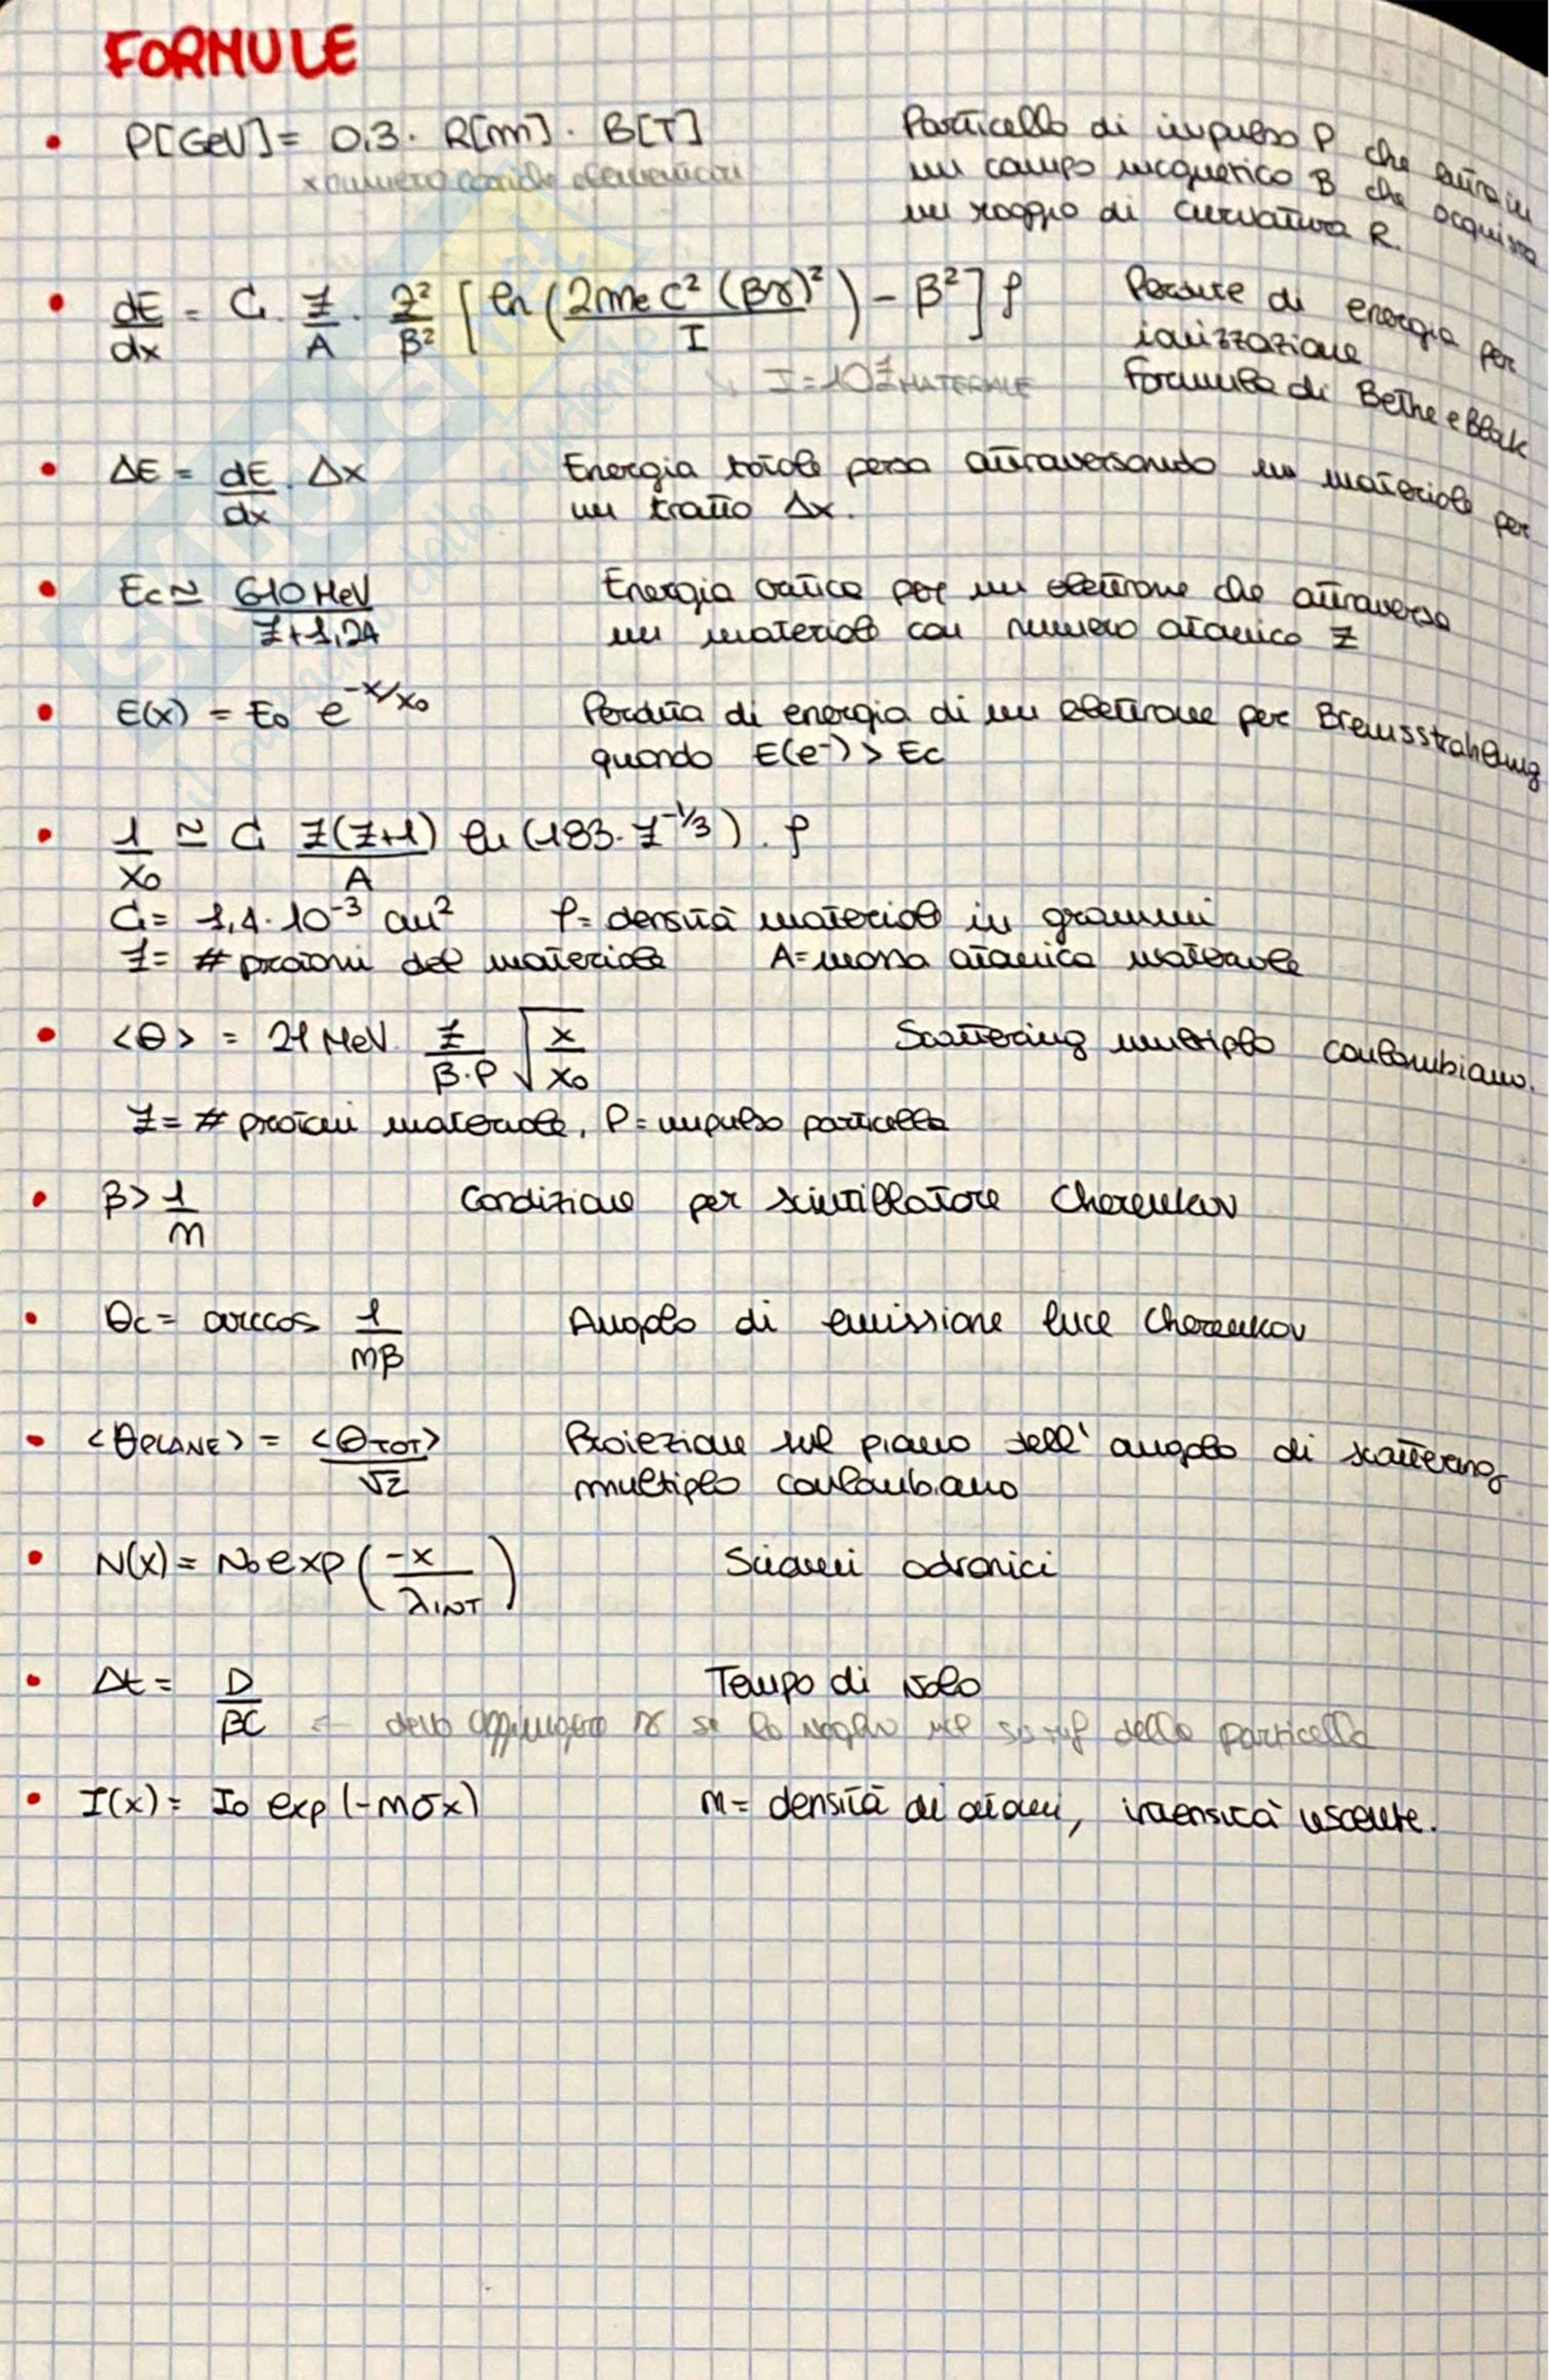 FORMULE
• P[GeV] = 0,3 · R[m] · B[T] Particella di impulso P che entra in
x numero cariche elementari un campo magnetico B che acquista
un raggio di curvatura R.
• dE/dx = C₁ · Z/A · Z²/β² [ln(2mec²(βγ)²/I) - β²] ρ Perdite di energia per
ionizzazione
↘ I = 10 Z MATERIALE Formula di Bethe e Block
• ΔE = dE/dx · Δx Energia totale persa attraversando un materiale per
un tratto Δx.
• Ec ≃ 610 MeV/Z+1,24 Energia critica per un elettrone che attraversa
un materiale con numero atomico Z
• E(x) = E₀ e^(-x/x₀) Perdita di energia di un elettrone per Bremsstrahlung
quando E(e⁻) > Ec
• 1/X₀ ≃ C₁ Z(Z+1)/A ln(183 · Z^(-1/3)) · ρ
C₁ = 1,4 · 10⁻³ cm² ρ = densità materiale in grammi
Z = # protoni del materiale A = massa atomica materiale
• <θ> = 21 MeV Z/β·P √x/x₀ Scattering multiplo coulombiano.
Z = # protoni materiale, P = impulso particella
• β > 1/n Condizione per scintillatore Cherenkov
• θc = arccos 1/nβ Angolo di emissione luce Cherenkov
• <θPLANE> = <θTOT>/√2 Proiezione sul piano dell' angolo di scattering
multiplo coulombiano
• N(x) = N₀ exp(-x/λINT) Sciami adronici
• Δt = D/βC Tempo di volo
← devo aggiungere γ se lo voglio nel della particella
• I(x) = I₀ exp(-nσx) n = densità di atomi, intensità uscente.
SKUOLA.net
il paradiso dello studente